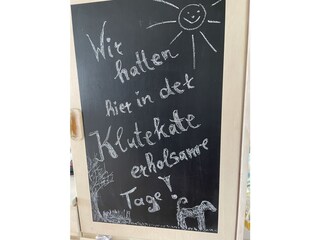 Wir
hatten
hier in der
Klutekate
erholsame
Tage!